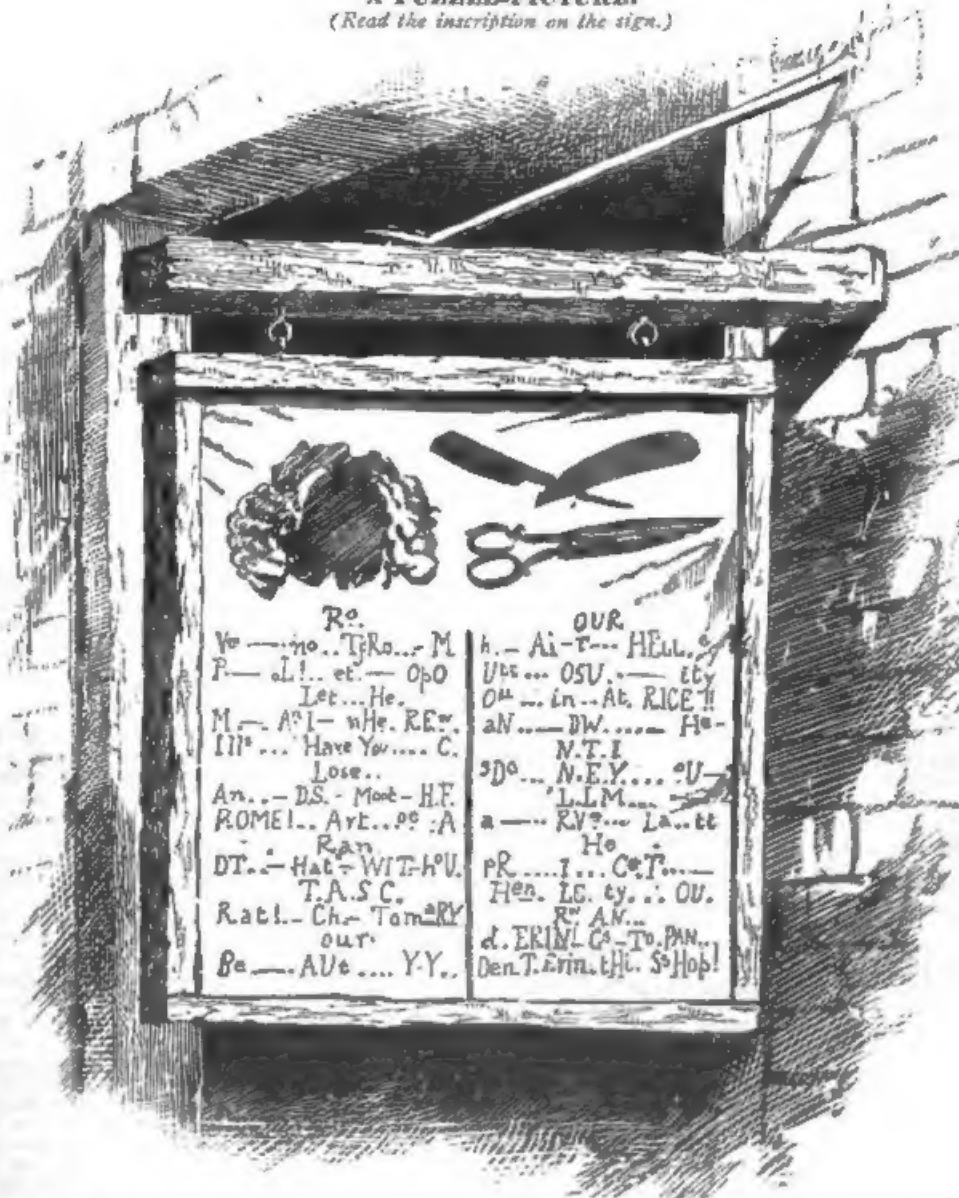 A PUZZLE-PICTURE.
(Read the inscription on the sign.)
Ro.
Ve —— no .. T,Ro..- M
P —— oL!.. et. — OpO
Let ... He.
M. — A°I — nHe. REw.
Ill° ... Have You .... C.
Lose..
An..— D.S. - Moot - H.F.
ROME!.. Art..oc :A
Ran
DT..— Hat - WITHoU.
T.A.S C.
Rat!.. Ch.- TomaRY
our.
Be —. AUt .... Y.Y..
OUR
h.— Ai—T--- HELL.o
Utt ... OSU..—— ity
Ou ... in .. At. RICE !!
aN .... — DW...... He-
N.T.I
sDo... N.E.Y.... oU—
'L.L.M....
a —-- RVe... La..tt
Ho
PR ....I... Ce.T...——
Hen. LC. ty. .. OU.
Rw AN...
d. ERIN!- Co - To.PAN..
Den.T.Erin.tHi. SsHop!